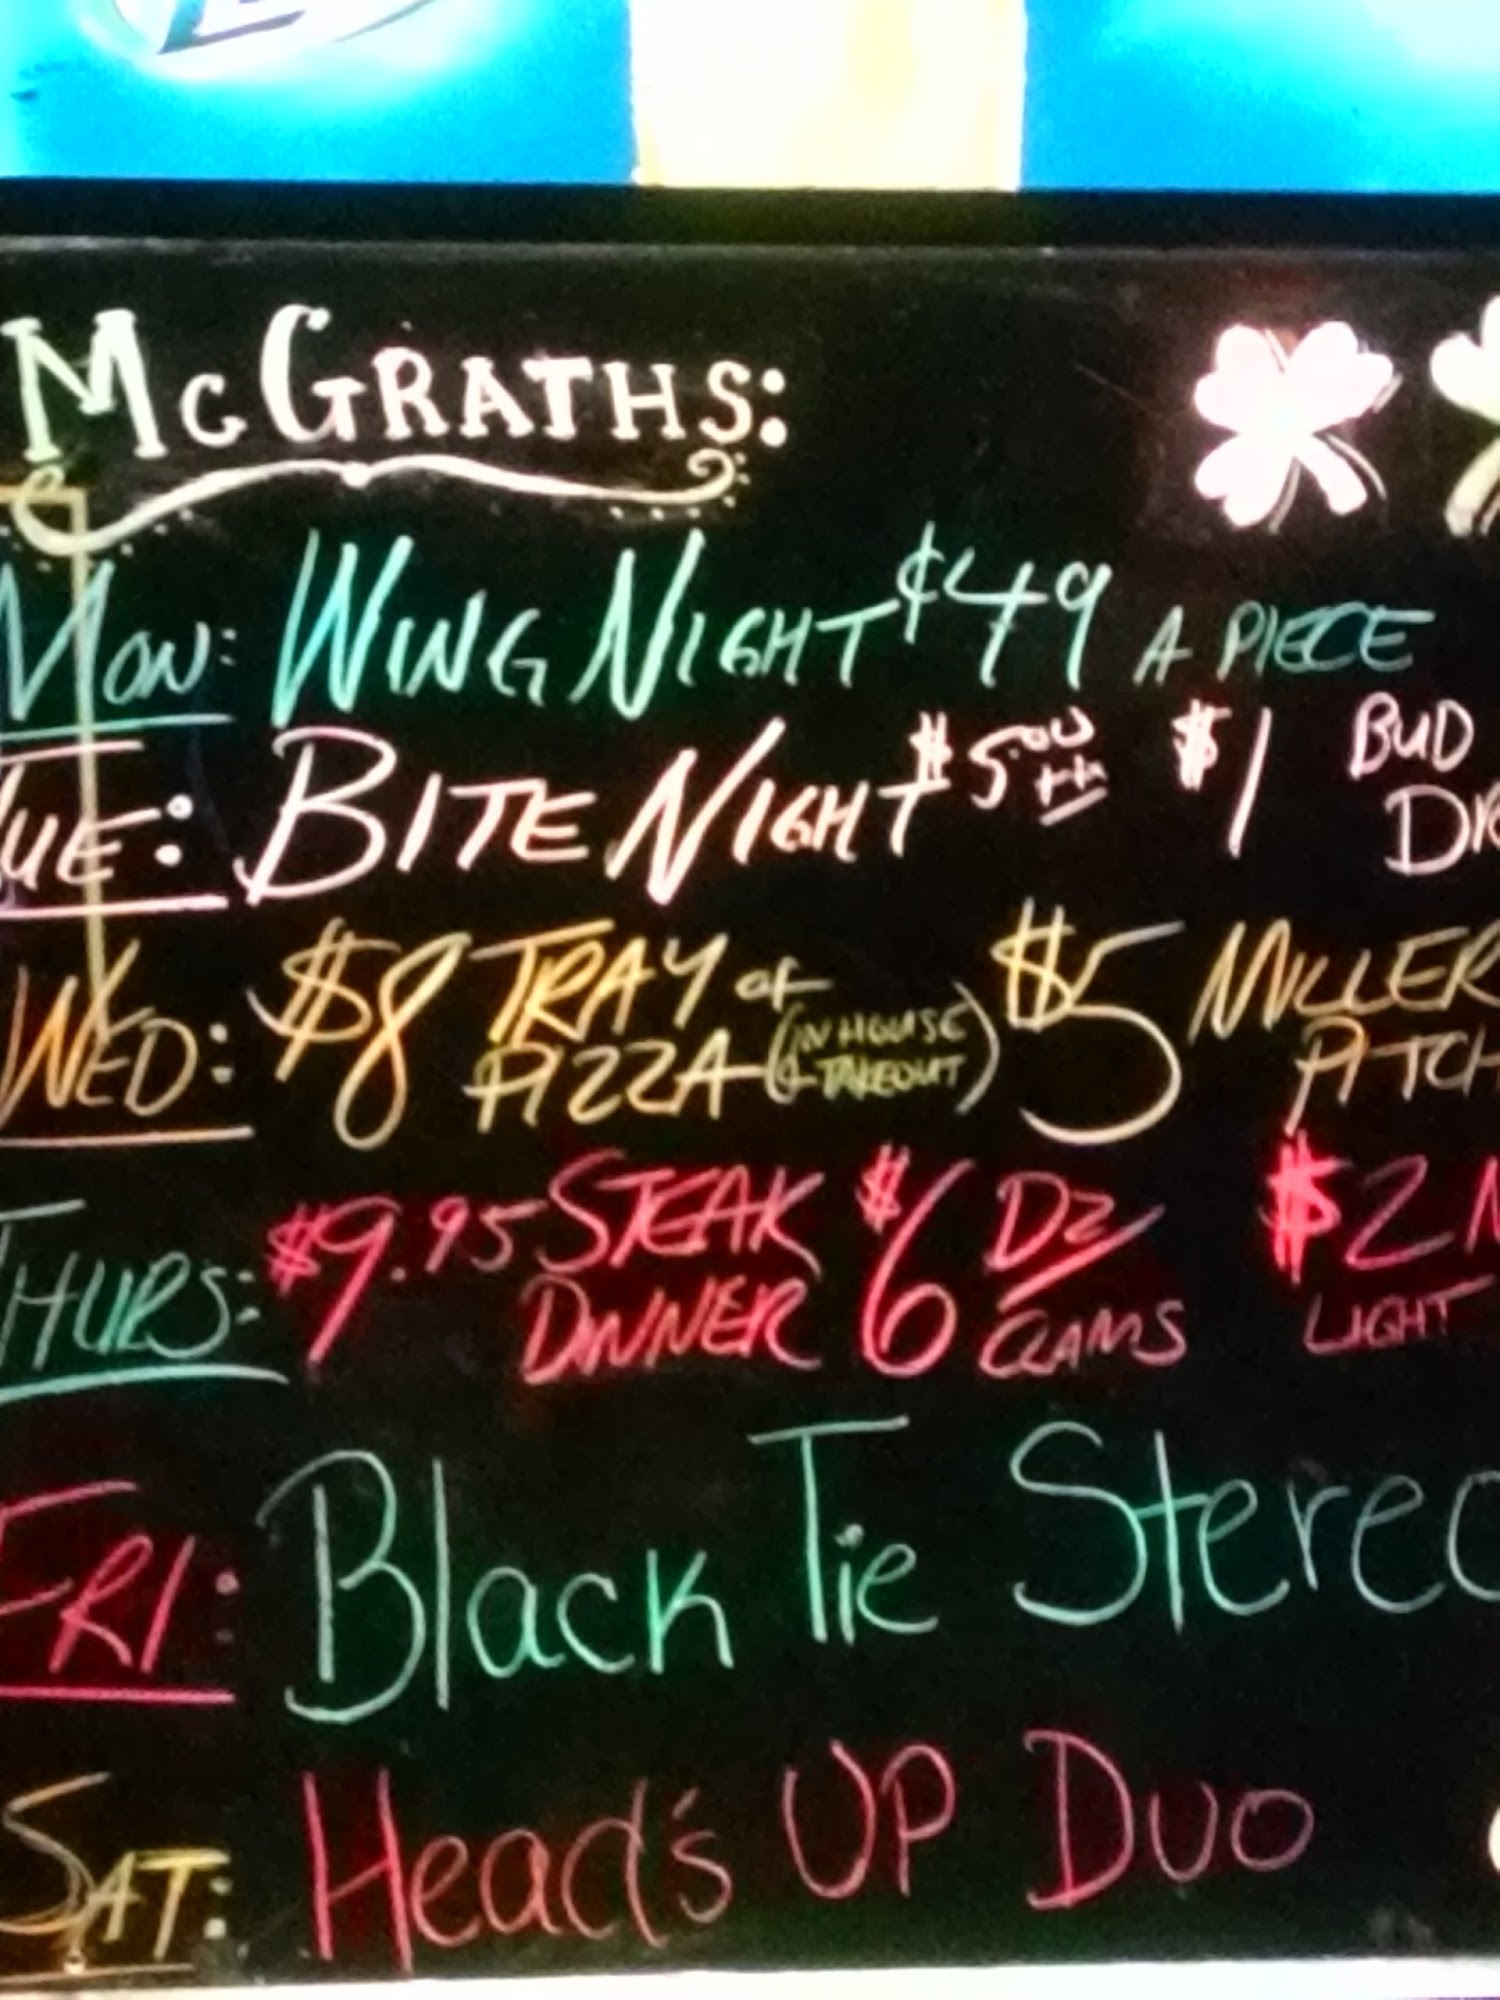 McGRATHS:
MON: WING NIGHT ¢49 A PIECE
TUE: BITE NIGHT $5.00 $1 BUD
WED: $8 TRAY of PIZZA (IN HOUSE & TAKEOUT) $5 MILLER PITCH
THURS: $9.95 STEAK DINNER $6 DZ CLAMS $2 LIGHT
FRI: Black Tie Stereo
SAT: Head's UP Duo